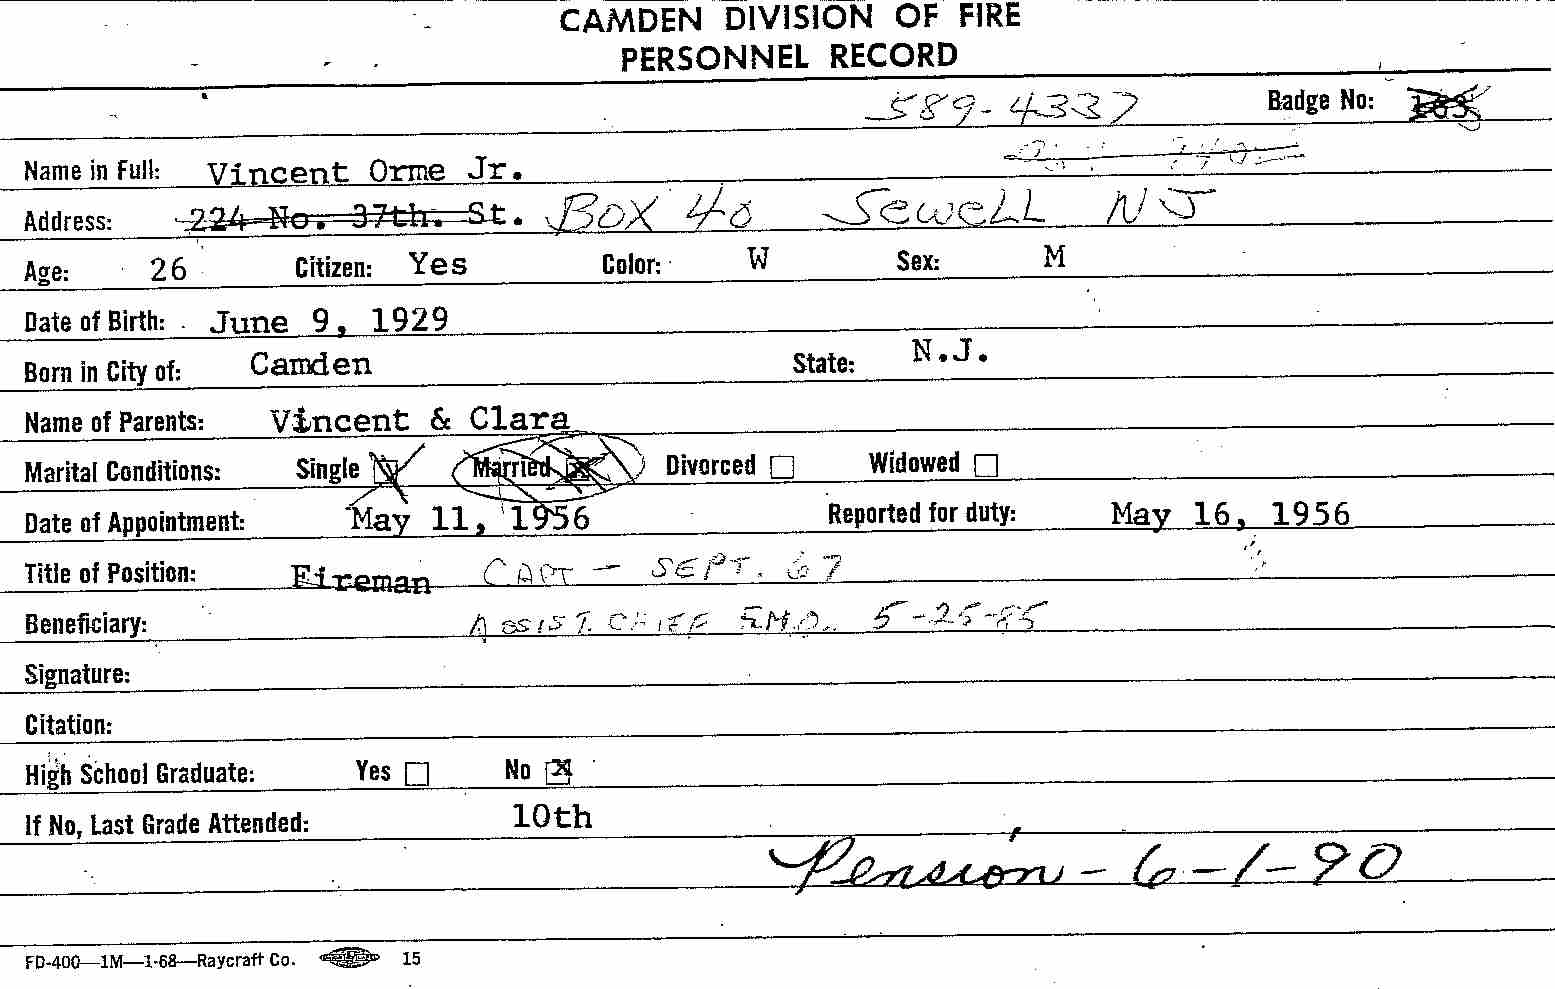 CAMDEN DIVISION OF FIRE
PERSONNEL RECORD
589-4337 Badge No: 163
Name in Full: Vincent Orme Jr.
Address: 224 No. 37th. St. Box 40 Sewell NJ
Age: 26 Citizen: Yes Color: W Sex: M
Date of Birth: June 9, 1929
Born in City of: Camden State: N.J.
Name of Parents: Vincent & Clara
Marital Conditions: Single Married Divorced Widowed
Date of Appointment: May 11, 1956 Reported for duty: May 16, 1956
Title of Position: Fireman CAPT - SEPT. 67
Beneficiary: ASSIST. CHIEF 5-25-85
Signature:
Citation:
High School Graduate: Yes No X
If No, Last Grade Attended: 10th
Pension - 6-1-90
FD-400—1M—1-68—Raycraft Co. 15